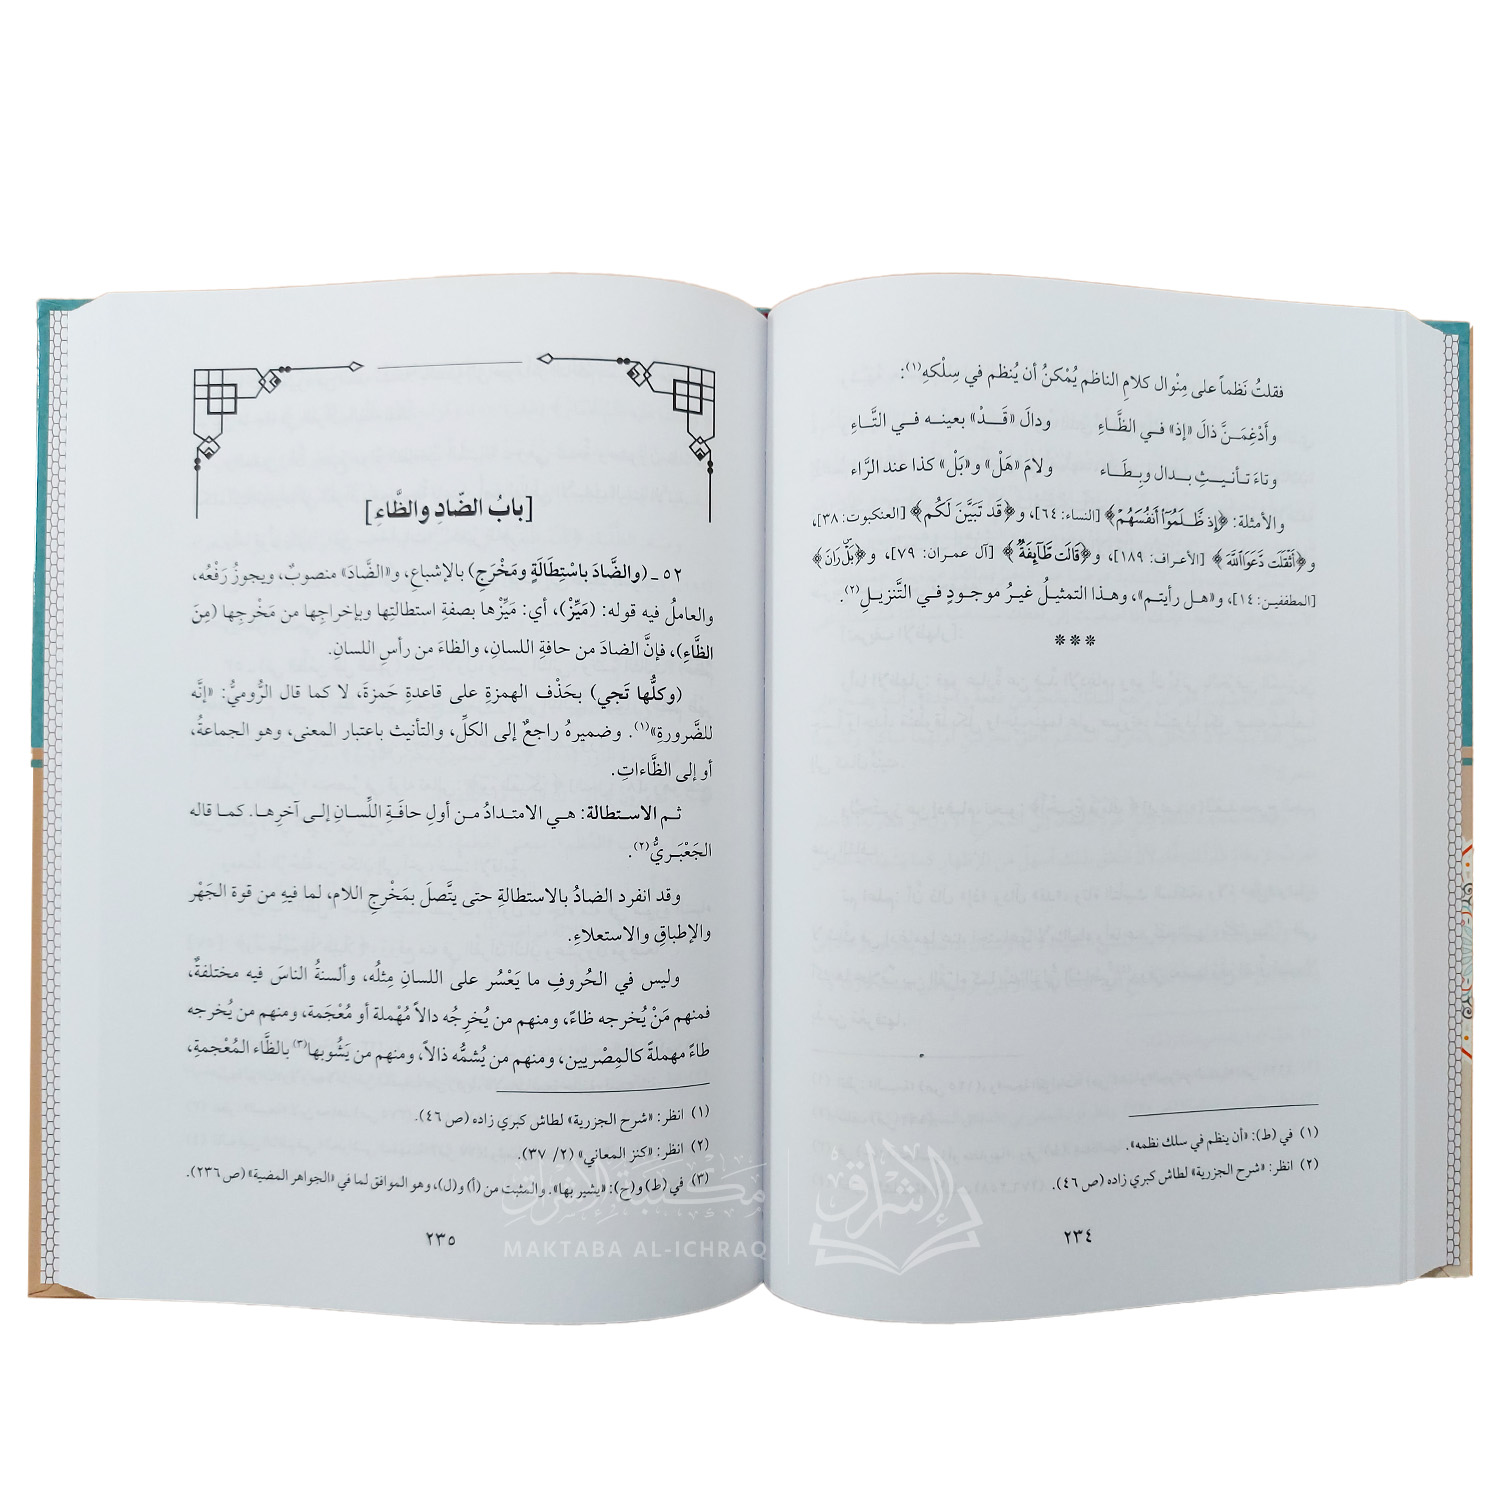 فقلتُ نَظماً على مِنْوال كلامِ الناظم يُمْكنُ أن يُنظم في سِلْكهِ(١):
وأَدْغِمَـنَّ ذالَ «إذ» فـي الظَّـاءِ ودالَ «قَــدْ» بعينـه فـي التَّـاءِ
وتاءَ تـأنـيـثِ بـدال وبِطَـاء ولامَ «هَلْ» و«بَلْ» كذا عند الرَّاء
والأمثلة: ﴿إِذ ظَّلَمُوٓاْ أَنفُسَهُمۡ﴾ [النساء: ٦٤]، و﴿قَد تَّبَيَّنَ لَكُم﴾ [العنكبوت: ٣٨]،
و﴿أَثْقَلَت دَّعَوَا ٱللَّهَ﴾ [الأعراف: ١٨٩]، و﴿قَالَت طَّآئِفَةٌ﴾ [آل عمـران: ٧٩]، و﴿بَلْ رَانَ﴾
[المطففين: ١٤]، و«هـل رأيتم»، وهـذا التمثيلُ غيـرُ موجـودٍ فـي التَّنزيـلِ(٢).
***
(١) في (ط): «أن ينظم في سلك نظمه».
(٢) انظر: «شرح الجزرية» لطاش كبري زاده (ص ٤٦).
٢٣٤
[بابُ الضّادِ والظَّاءِ]
٥٢ ـ (والضَّادَ باسْتِطَالَةٍ ومَخْرَجِ) بالإشباعِ، و«الضَّادَ» منصوبٌ، ويجوزُ رَفْعُه،
والعاملُ فيه قوله: (مَيِّزْ)، أي: مَيِّزْها بصفةِ استطالتِها وبإخراجِها من مَخْرجِها (مِنَ
الظَّاءِ)، فإنَّ الضادَ من حافةِ اللسانِ، والظاءَ من رأسِ اللسانِ.
(وكلُّها تَجي) بحَذْف الهمزةِ على قاعدةِ حَمزةَ، لا كما قال الرُّوميُّ: «إنَّه
للضَّرورةِ»(١). وضميرهُ راجعٌ إلى الكلِّ، والتأنيث باعتبار المعنى، وهو الجماعةُ،
أو إلى الظَّاءاتِ.
ثـم الاستـطالة: هـي الامتـدادُ مـن أولِ حافَـةِ اللِّسـانِ إلـى آخرِهـا. كمـا قاله
الجَعْبَـريُّ(٢).
وقد انفرد الضادُ بالاستطالةِ حتى يتَّصلَ بمَخْرجِ اللام، لما فيهِ من قوة الجَهْر
والإطباقِ والاستعلاءِ.
وليس في الحُروفِ ما يَعْسُر على اللسانِ مِثلُه، وألسنةُ الناسَ فيه مختلفةٌ،
فمنهم مَنْ يُخرجه ظاءً، ومنهم من يُخرِجُه دالاً مُهْملة أو مُعْجَمة، ومنهم من يُخرجه
طاءً مهملةً كالمِصْريين، ومنهم من يُشمُّه ذالاً، ومنهم من يَشُوبها(٣) بالظَّاء المُعْجمةِ،
(١) انظر: «شرح الجزرية» لطاش كبري زاده (ص ٤٦).
(٢) انظر: «كنز المعاني» (٢/ ٣٧).
(٣) في (ط) و(ح): «يشير بها». والمثبت من (أ) و(ل)، وهو الموافق لما في «الجواهر المضية» (ص ٢٣٦).
٢٣٥
مكتبة الإشراق
MAKTABA AL-ICHRAQ
الإشراق